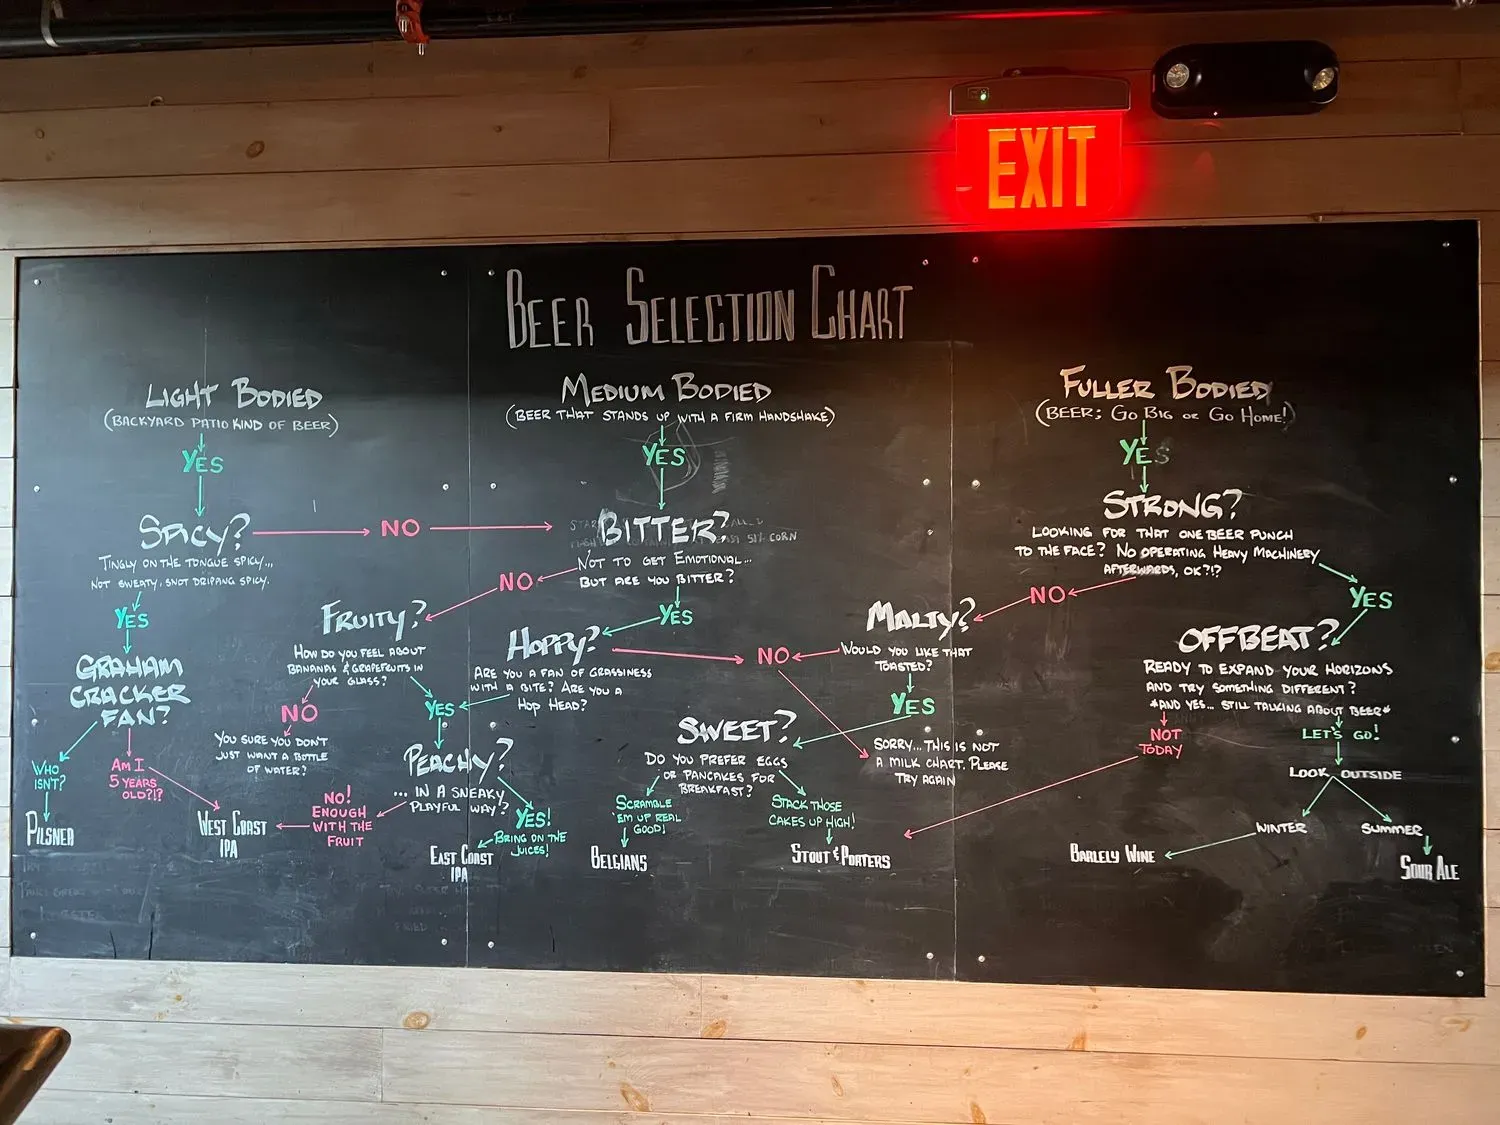 EXIT
BEER SELECTION CHART
LIGHT BODIED
(BACKYARD PATIO KIND OF BEER)
YES
SPICY?
TINGLY ON THE TONGUE SPICY...
NOT SWEATY, SNOT DRIPPING SPICY.
NO
YES
GRAHAM
CRACKER
FAN?
WHO
ISN'T?
PILSNER
AM I
5 YEARS
OLD?!?
WEST COAST
IPA
MEDIUM BODIED
(BEER THAT STANDS UP WITH A FIRM HANDSHAKE)
YES
BITTER?
NOT TO GET EMOTIONAL...
BUT ARE YOU BITTER?
NO
YES
FRUITY?
HOW DO YOU FEEL ABOUT
BANANAS & GRAPEFRUITS IN
YOUR GLASS?
NO
YOU SURE YOU DON'T
JUST WANT A BOTTLE
OF WATER?
YES
HOPPY?
ARE YOU A FAN OF GRASSINESS
WITH A BITE? ARE YOU A
HOP HEAD?
NO
PEACHY?
... IN A SNEAKY
PLAYFUL WAY!?
NO!
ENOUGH
WITH THE
FRUIT
YES!
BRING ON THE
JUICES!
EAST COAST
IPA
FULLER BODIED
(BEER; GO BIG OR GO HOME!)
YES
STRONG?
LOOKING FOR THAT ONE BEER PUNCH
TO THE FACE? NO OPERATING HEAVY MACHINERY
AFTERWARDS, OK?!?
NO
YES
MALTY?
WOULD YOU LIKE THAT
TOASTED?
YES
SORRY...THIS IS NOT
A MILK CHART. PLEASE
TRY AGAIN
SWEET?
DO YOU PREFER EGGS
OR PANCAKES FOR
BREAKFAST?
SCRAMBLE
'EM UP REAL
GOOD!
BELGIANS
STACK THOSE
CAKES UP HIGH!
STOUT & PORTERS
OFFBEAT?
READY TO EXPAND YOUR HORIZONS
AND TRY SOMETHING DIFFERENT?
*AND YES... STILL TALKING ABOUT BEER*
NOT
TODAY
LET'S GO!
LOOK OUTSIDE
WINTER
SUMMER
BARLELY WINE
SOUR ALE